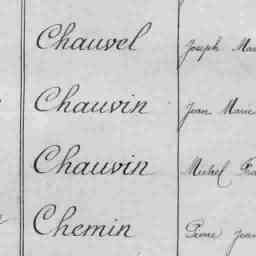 Chauvel Joseph Mar
Chauvin Jean Marie
Chauvin Michel Fra
Chemin Pierre Jean